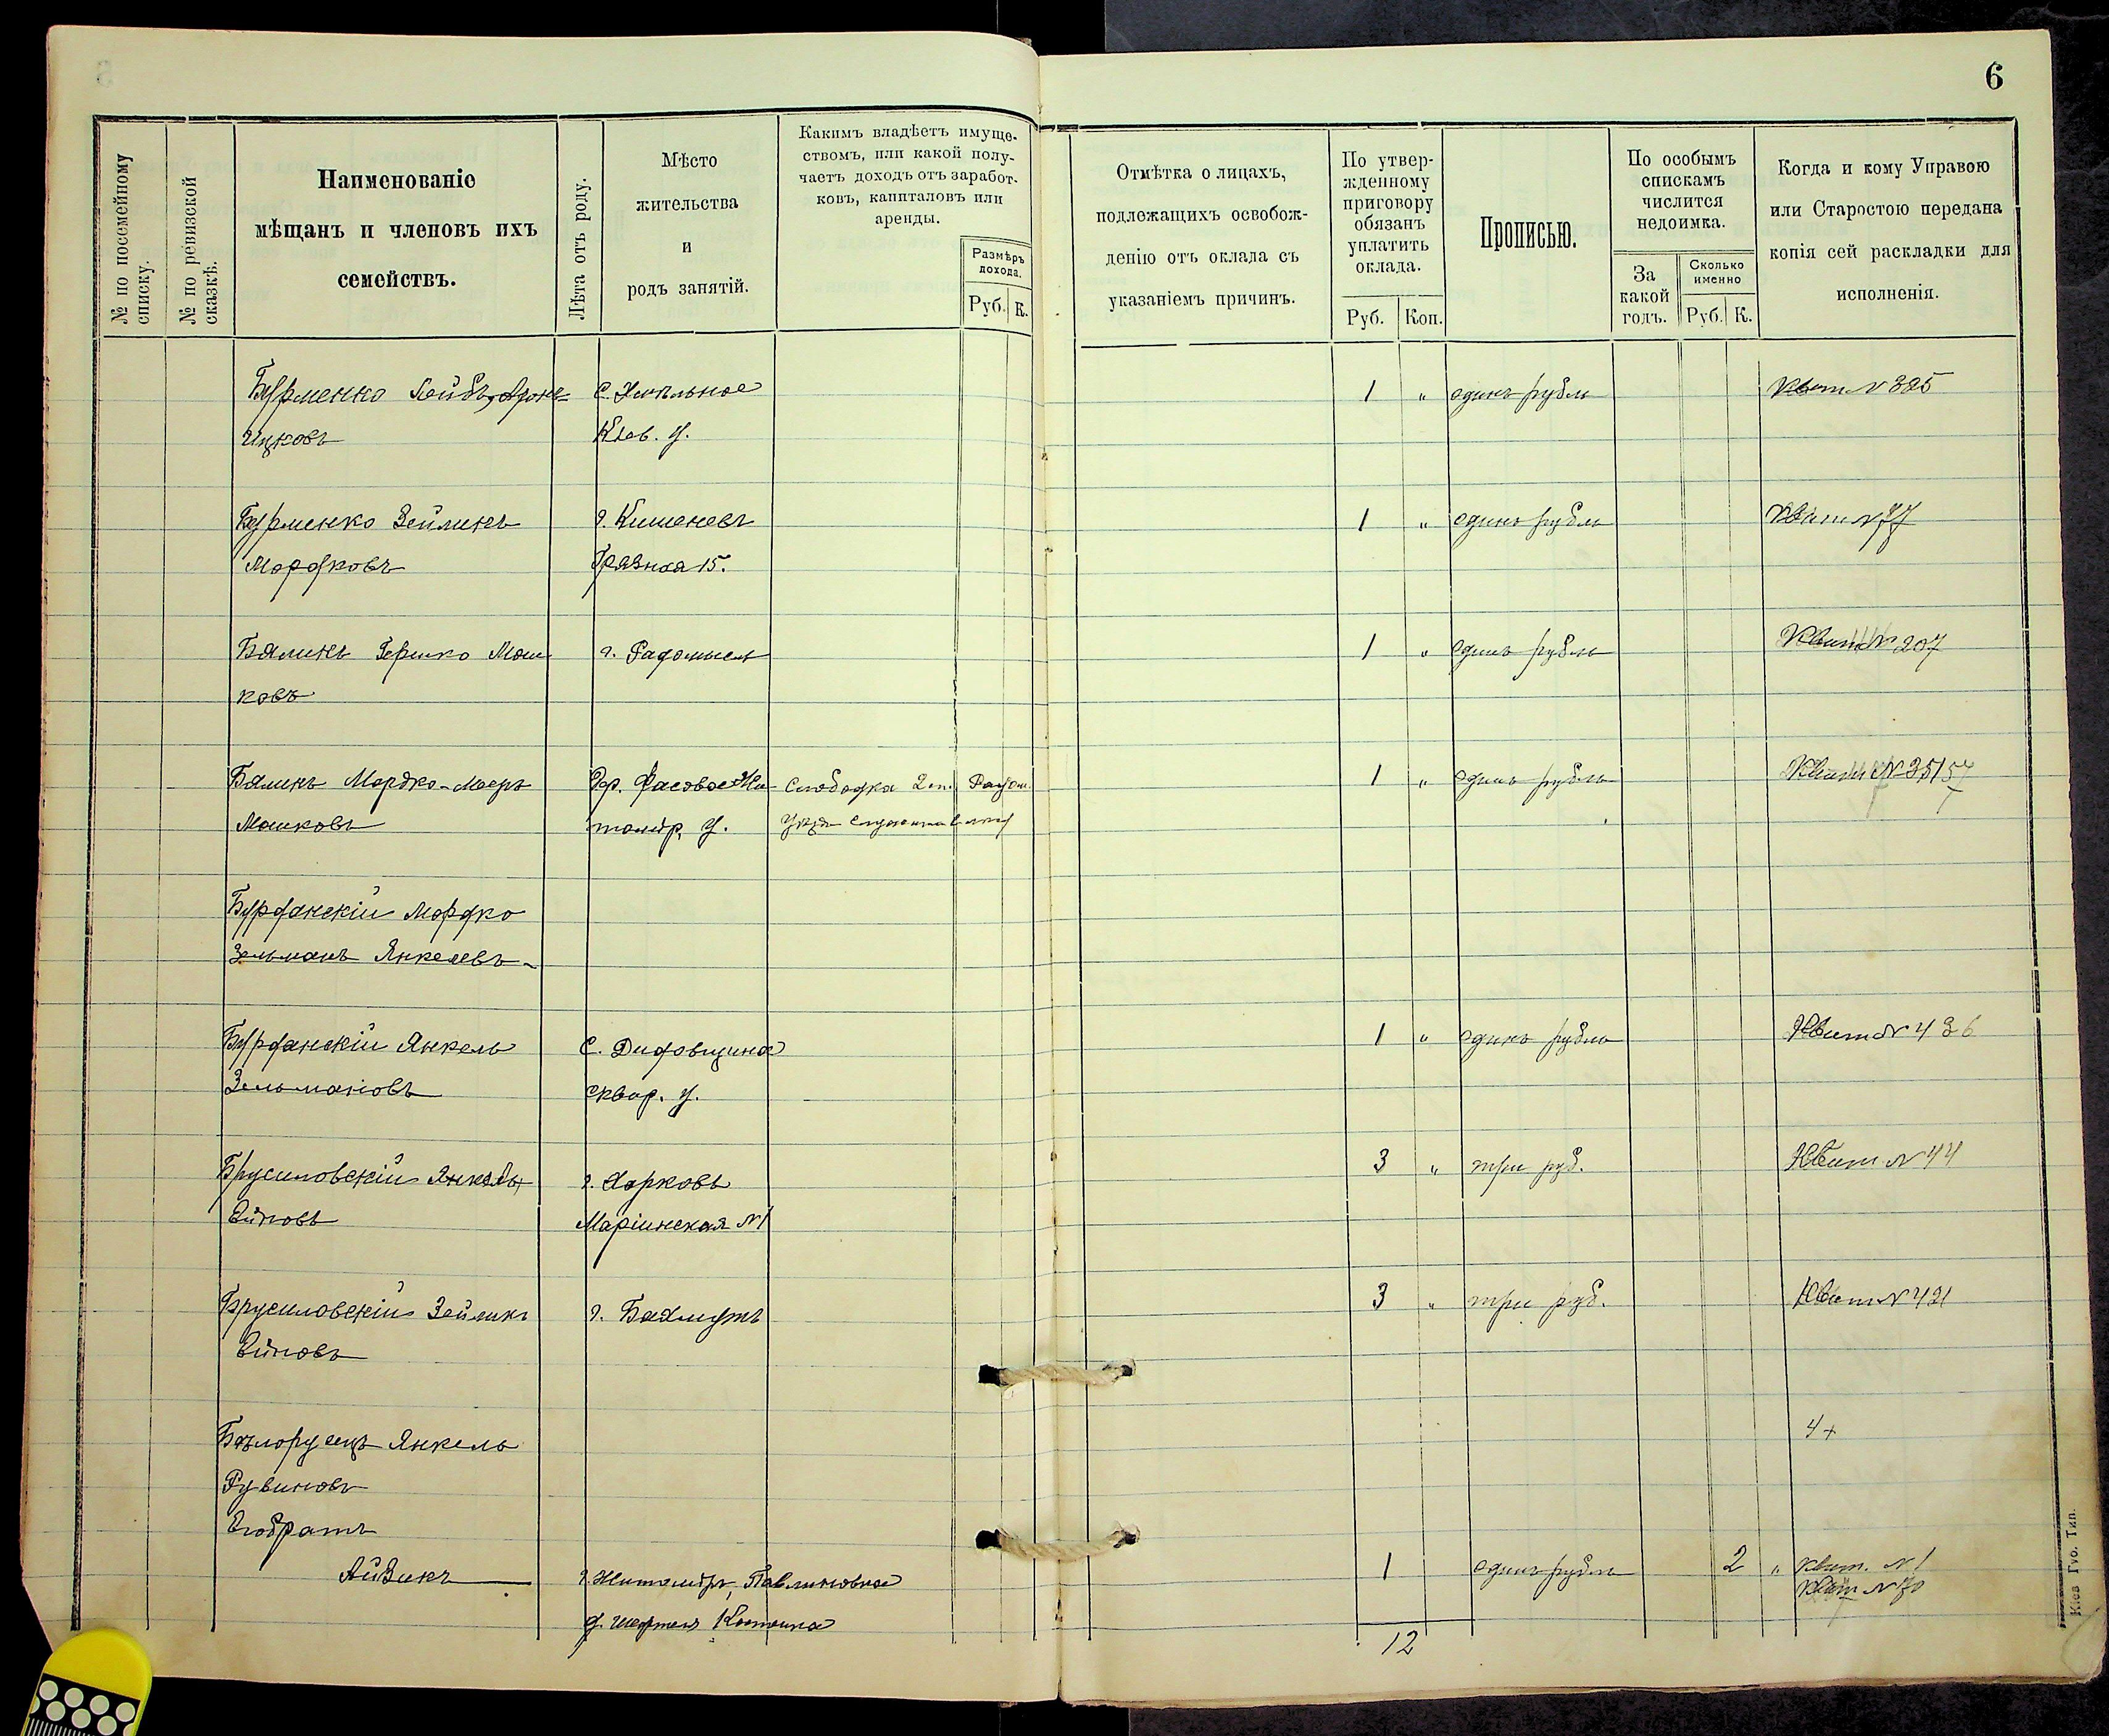 6
№ по посемейному списку.
№ по ревизской сказкѣ.
Наименованіе
мѣщанъ и членовъ ихъ
семействъ.
Лѣта отъ роду.
Мѣсто
жительства
и
родъ занятій.
Какимъ владѣетъ имуще-
ствомъ, или какой полу-
чаетъ доходъ отъ заработ-
ковъ, капиталовъ или
аренды.
Размѣръ
дохода.
Руб. К.
Отмѣтка о лицахъ,
подлежащихъ освобож-
денію отъ оклада съ
указаніемъ причинъ.
По утвер-
жденному
приговору
обязанъ
уплатить
оклада.
Руб. Коп.
Прописью.
По особымъ
спискамъ
числится
недоимка.
За
какой
годъ.
Сколько
именно
Руб. К.
Когда и кому Управою
или Старостою передана
копія сей раскладки для
исполненія.
Бурменко Лейбъ, Аронъ- с. Хмѣльное 1 " одинъ рубль Квит № 325
Ицковъ Кіев. у.
Бурменко Зейликъ г. Кишеневъ 1 " одинъ рубль Квит № 77
Мордковъ Грязная 15.
Бяликъ Гершко Мош- г. Радомысль 1 " одинъ рубль Квит № 207
ковъ
Бяликъ Мордко-Мееръ Фасовое Жи- Слободка 2 Радом. 1 " одинъ рубль Квит №
Мошковъ томір. у.
Бурданскій Мордко
Зельманъ Янкелевъ
Бурданскій Янкель с. Дидовщина 1 " одинъ рубль Квит № 436
Зельмановъ Сквир. у.
Брусиловскій Янкель г. Харковъ 3 " три руб. Квит № 44
Маріинская № 1
Брусиловскій Зейликъ г. Бахмутъ 3 " три руб. Квит № 421
Бѣлорусецъ Янкель 4+
Рувиновъ
Его братъ
Айзикъ г. Житоміръ, 1 одинъ рубль 2 " квит. № 1
Квит № 70
12
Кіев Гуо. Тип.